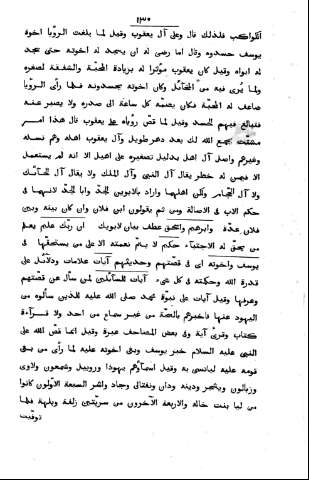 ١٣٠
الكواكب فلذلك قال وعلى آل يعقوب وقيل لما بلغت الرؤيا اخوة
يوسف حسدوه وقال اما رضى له ان يسجد له اخوته حتى يسجد
له ابواه وقيل كان يعقوب مؤثرا له بزيادة المحبة والشفقة لصغره
ولما يرى فيه من المخائل وكان اخوته يحسدونه فلما رأى الرؤيا
ضاعف له المحبة فكان يضمه كل ساعة الى صدره ولا يصبر عنه
فتبالغ فيهم الحسد وقيل لما قص رؤياه على يعقوب قال هذا امر
مشتت يجمع الله لك بعد دهر طويل وآل يعقوب اهله وهم نسله
وغيرهم واصل آل اهل بدليل تصغيره على اهيل الا انه لا يستعمل
الا فيمن له خطر يقال آل النبى وآل الملك ولا يقال آل الحائك
ولا آل الحجام ولكن اهلهما واراد بالابوين الجد وابا الجد لانهما فى
حكم الاب فى الاصالة ومن ثم يقولون ابن فلان وان كان بينه وبين
فلان عدة وابرهيم واسحق عطف بيان لابويك ان ربك عليم يعلم
من يحق له الاجتباء حكيم لا يتم نعمته الا على من يستحقها فى
يوسف واخوته اى فى قصتهم وحديثهم آيات علامات ودلائل على
قدرة الله وحكمته فى كل شىء آيات للسائلين لمن سأل عن قصتهم
وعرفها وقيل آيات على نبوة محمد صلى الله عليه للذين سألوه من
اليهود عنها فاخبرهم بالصحة من غير سماع من احد ولا قراءة
كتاب وقرئ آية وفى بعض المصاحف عبرة وقيل انما قص الله على
النبى عليه السلام خبر يوسف وبغى اخوته عليه لما رأى من بغى
قومه عليه ليأتسى به وقيل اسماؤهم يهوذا وروبيل وشمعون ولاوى
وزبالون ويشجر ودينه ودان ونفتالى وجاد واشر السبعة الاولون كانوا
من ليا بنت خالة والاربعة الآخرون من سريتين زلفة وبلهة فلما
توفيت